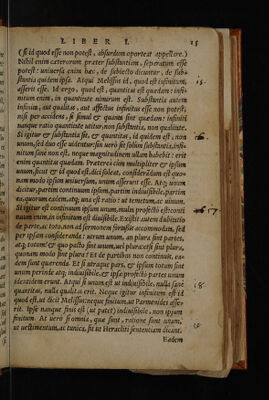 LIBER I. 15
(si id quod esse non potest, absurdum oporteat appellare.)
Nihil enim caeterorum praeter substantiam, separatum esse
potest: universa enim haec, de subiecto dicuntur, de sub-
stantia quidem ipsa. Atqui Melissus id, quod est infinitum, 15.
asserit esse. Id ergo, quod est, quantitas est quaedam: infi-
nitum enim, in quantitate nimirum est. Substantia autem
infinita, aut qualitas, aut affectus infinitus esse non potest,
nisi per accidens, si simul & quanta sint quaedam: infiniti
nanque ratio quantitate utitur, non substantia, non qualitate.
Si igitur & substantia sit, & quantitas, id quidem est, non 16.
unum, sed duo esse uidentur: sin uerò sit solùm substantia, infi-
nitum sanè non est, neque magnitudinem ullam habebit: erit
enim quantitas quaedam. Praeterea cùm multipliciter & ipsum
unum, sicut & id quod est, dici soleat, considerandum est quo-
nam modo ipsum uniuersum, unum asserunt esse. Atqui unum
dicitur, partim continuum ipsum, partim indiuisibile, partim
ea, quorum eadem, atque una est ratio: ut temetum, ac uinum.
Si igitur est continuum ipsum unum, multa profectò est: conti 17
nuum enim, in infinitum est diuisibile. Existit autem dubitatio
de parte, ac toto, non ad sermonem fortasse accommodata, sed
per ipsam consideranda: utrum unum, an plura sint partes,
atque totum: & quo pacto sint unum, uel plura: & si sint plura,
quonam modo sint plura: Et de partibus non continuis, ea-
dem sunt quaerenda. Et si utraque pars, & ipsum totum sint
unum perinde atque indiuisibile, & ipsae profectò partes unum
identidem erunt. Atqui si unum est ut indiuisibile, nulla sanè 18.
quantitas, nulla qualitas erit. Neque igitur infinitum est id
quod est, ut dicit Melissus: neque finitum, ut Parmenides asse-
rit. Ipse nanque finis est (ut patet) indiuisibile, non ipsum
finitum. At uerò si omnia, quae sunt, ratione sunt unum,
ut uestimentum, ac tunica, sit ut Heracliti sententiam dicant.
Eadem